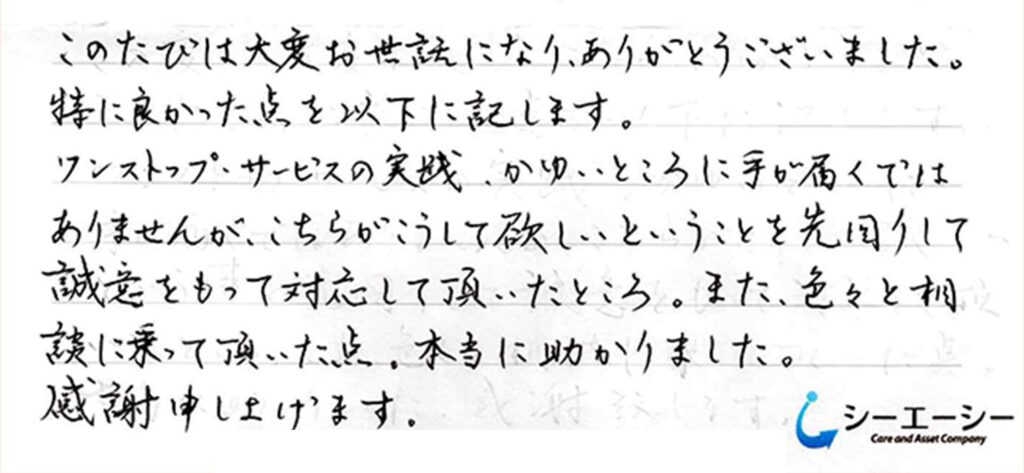 このたびは大変お世話になり、ありがとうございました。
特に良かった点を以下に記します。
ワンストップ・サービスの実践、かゆいところに手が届くでは
ありませんが、こちらがこうして欲しいということを先回りして
誠意をもって対応して頂いたところ。また、色々と相
談に乗って頂いた点。本当に助かりました。
感謝申し上げます。
シーエーシー
Care and Asset Company